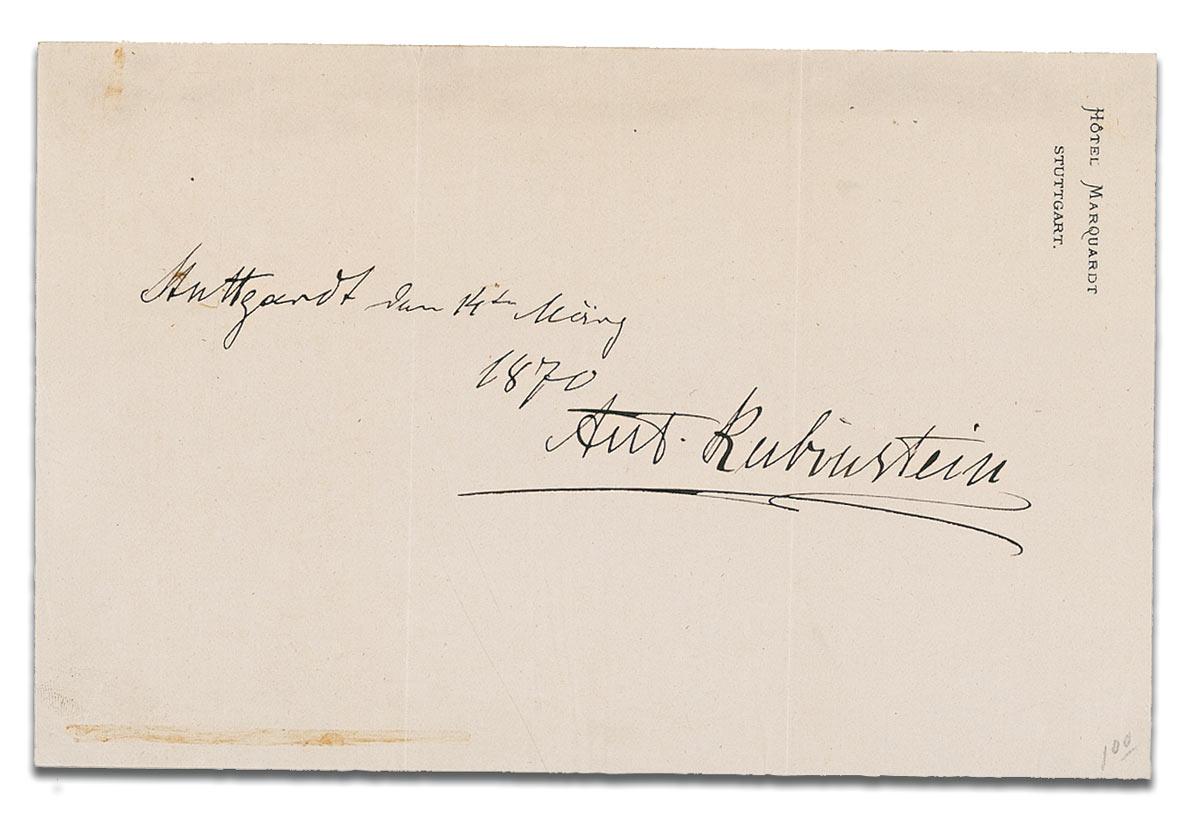 HÔTEL MARQUARDT
STUTTGART.
Stuttgardt den 14ten März
1870
Ant. Rubinstein
100